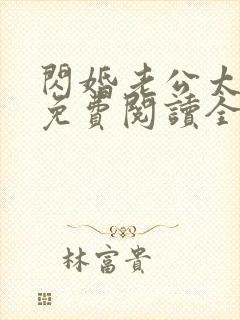 閃婚老公大
免費閱讀全
林富貴